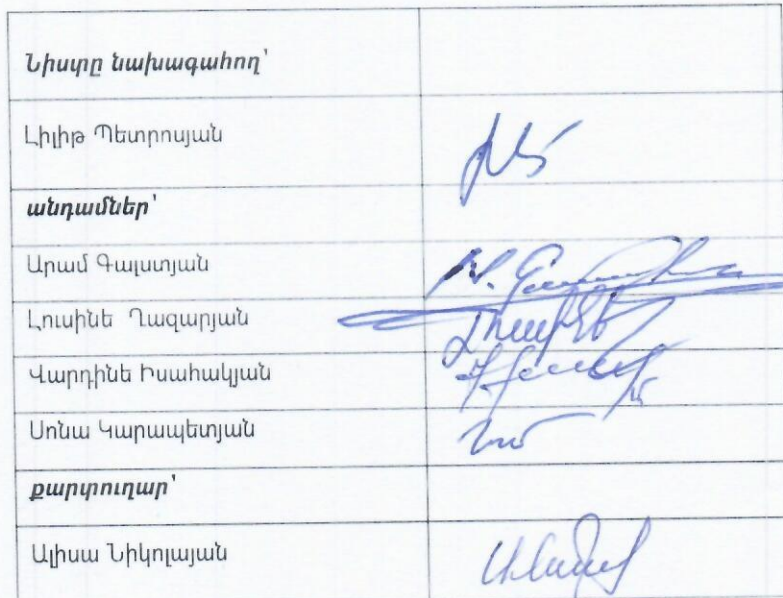 Նիստը նախագահող՝
Լիլիթ Պետրոսյան
անդամներ՝
Արամ Գալստյան
Լուսինե Ղազարյան
Վարդինե Իսահակյան
Սոնա Կարապետյան
քարտուղար՝
Ալիսա Նիկոլայան